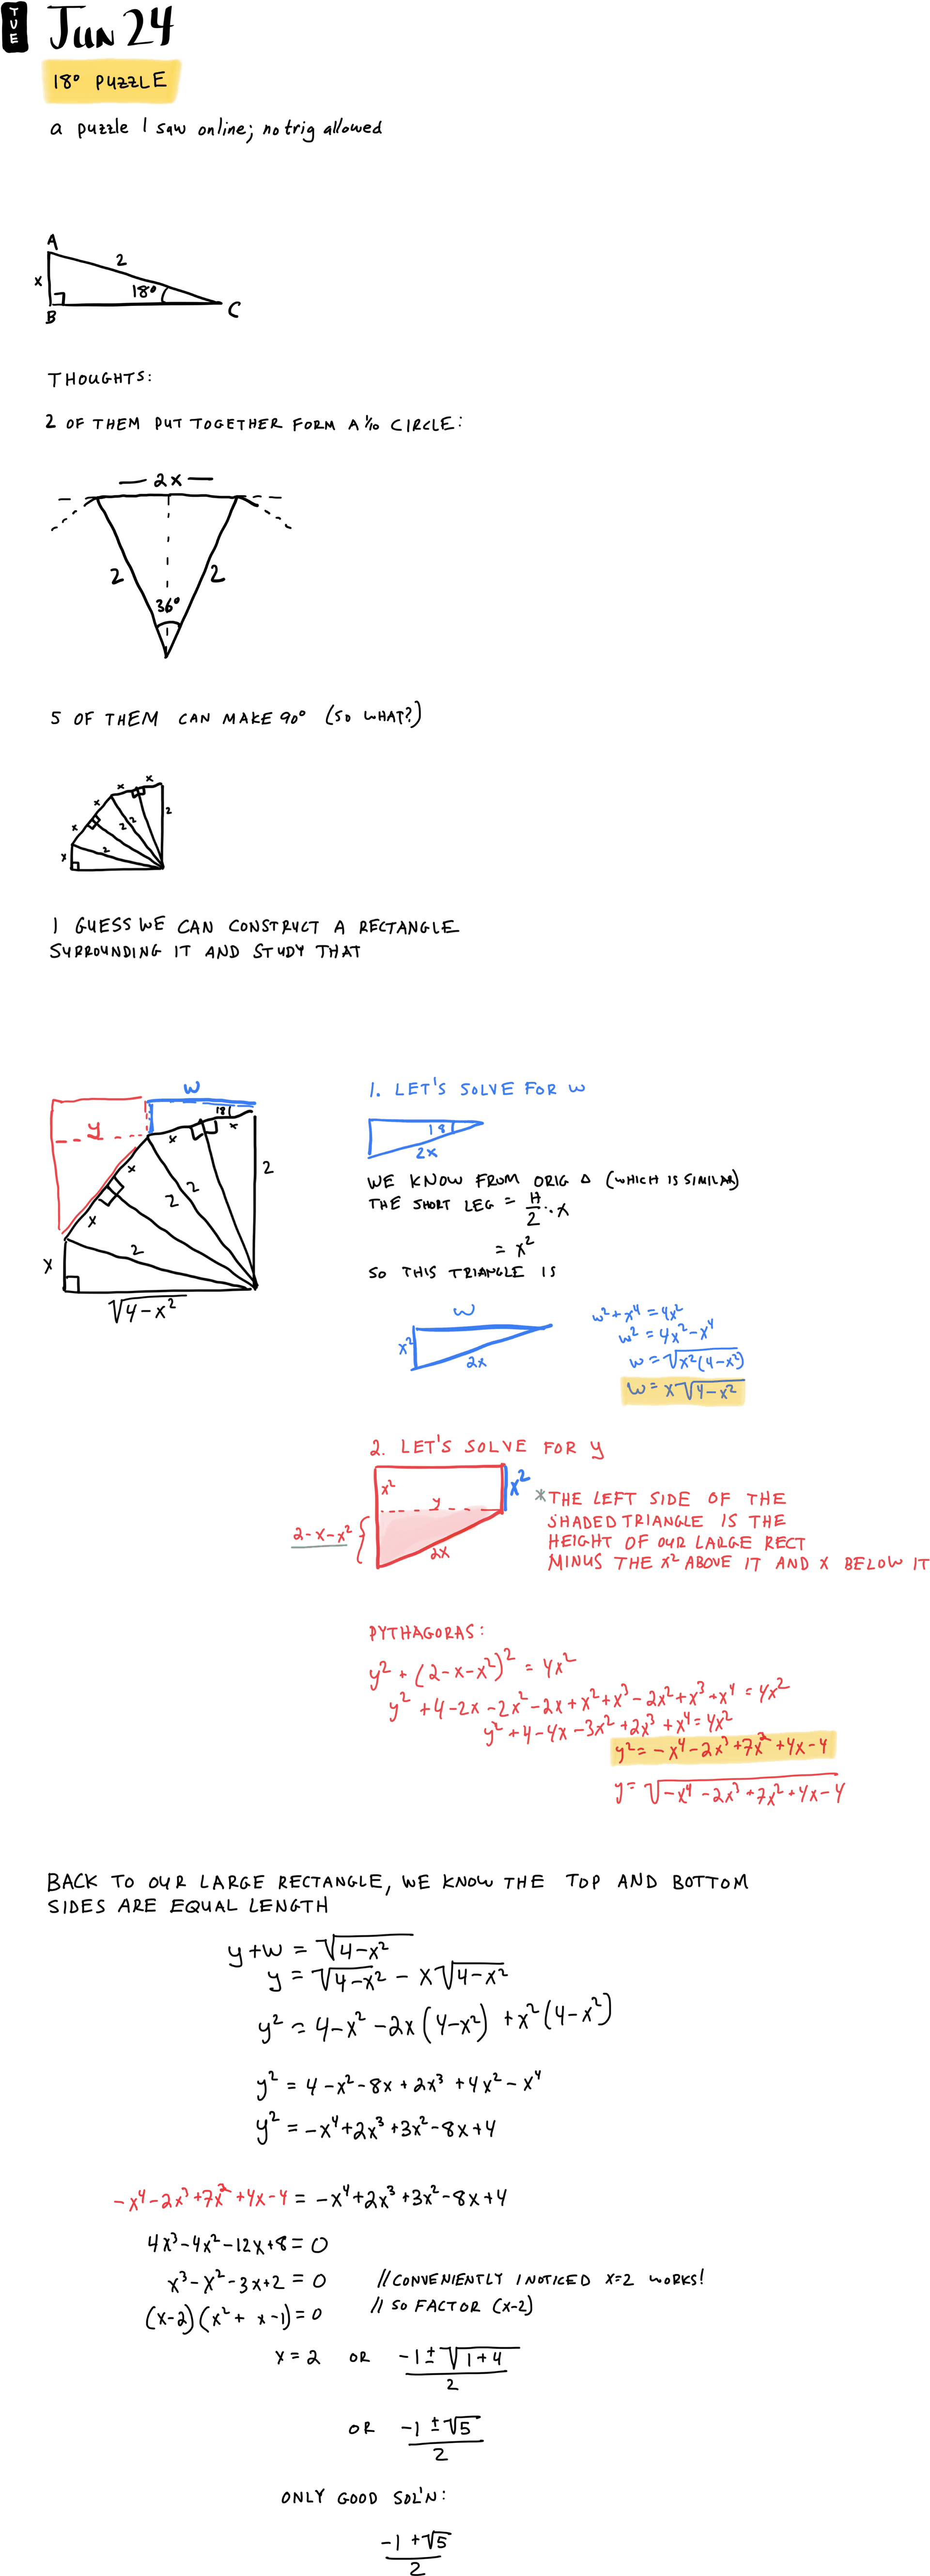 TUE
Jun 24
18° PUZZLE
a puzzle I saw online; no trig allowed
A
2
x
18°
B
C
THOUGHTS:
2 OF THEM PUT TOGETHER FORM A 1/10 CIRCLE:
2x
2
2
36°
5 OF THEM CAN MAKE 90° (SO WHAT?)
x
x
x
2
x
2
2
x
2
I GUESS WE CAN CONSTRUCT A RECTANGLE
SURROUNDING IT AND STUDY THAT
w
18
y
x
x
x
2
2
2
x
2
x
√4-x²
1. LET'S SOLVE FOR w
18
2x
WE KNOW FROM ORIG Δ (WHICH IS SIMILAR)
THE SHORT LEG = H/2 · x
= x²
SO THIS TRIANGLE IS
w
x²
2x
w² + x⁴ = 4x²
w² = 4x² - x⁴
w = √x²(4-x²)
w = x√4-x²
2. LET'S SOLVE FOR y
x²
x²
y
2-x-x²
2x
* THE LEFT SIDE OF THE
SHADED TRIANGLE IS THE
HEIGHT OF OUR LARGE RECT
MINUS THE x² ABOVE IT AND x BELOW IT
PYTHAGORAS:
y² + (2-x-x²)² = 4x²
y² + 4-2x-2x²-2x+x²+x³-2x²+x³+x⁴ = 4x²
y² + 4-4x-3x²+2x³+x⁴ = 4x²
y² = -x⁴-2x³+7x²+4x-4
y = √-x⁴-2x³+7x²+4x-4
BACK TO OUR LARGE RECTANGLE, WE KNOW THE TOP AND BOTTOM
SIDES ARE EQUAL LENGTH
y+w = √4-x²
y = √4-x² - x√4-x²
y² = 4-x²-2x(4-x²) + x²(4-x²)
y² = 4-x²-8x+2x³+4x²-x⁴
y² = -x⁴+2x³+3x²-8x+4
-x⁴-2x³+7x²+4x-4 = -x⁴+2x³+3x²-8x+4
4x³-4x²-12x+8 = 0
x³-x²-3x+2 = 0 // CONVENIENTLY I NOTICED x=2 WORKS!
(x-2)(x²+x-1) = 0 // SO FACTOR (x-2)
x = 2 OR -1±√1+4 / 2
OR -1±√5 / 2
ONLY GOOD SOL'N:
-1+√5 / 2